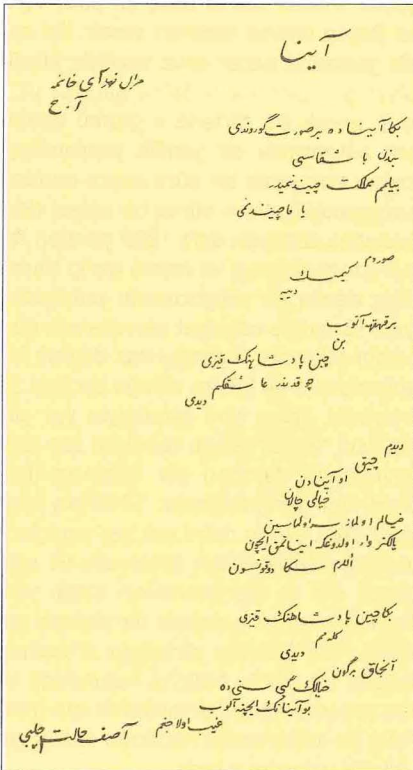 آینا
آ. ح
بكا آینا ده بر صورت گوروندی
بندن باشقاسی
بیلمم مملكت چیندنمیدر
یا ماچیندنمی
صوردم
كیمسك
دییه
بر قهقهه آتوب
بن
چین پادشاهنك قیزی
چوقدندر عاشقكم
دیدی
دیدم
چیق
او آینادن
خیالی چالان
یالكز وار اولدوغكه اینانمق ایچون
اللرم سكا دوقونسون
بكا چین پادشاهنك قیزی
گلهمم
دیدی
آنجاق بر گون
خیالك گبی سنی ده
بو آینانك ایچنه آلوب
غیب اولاجغم
آصف حالت چلبی